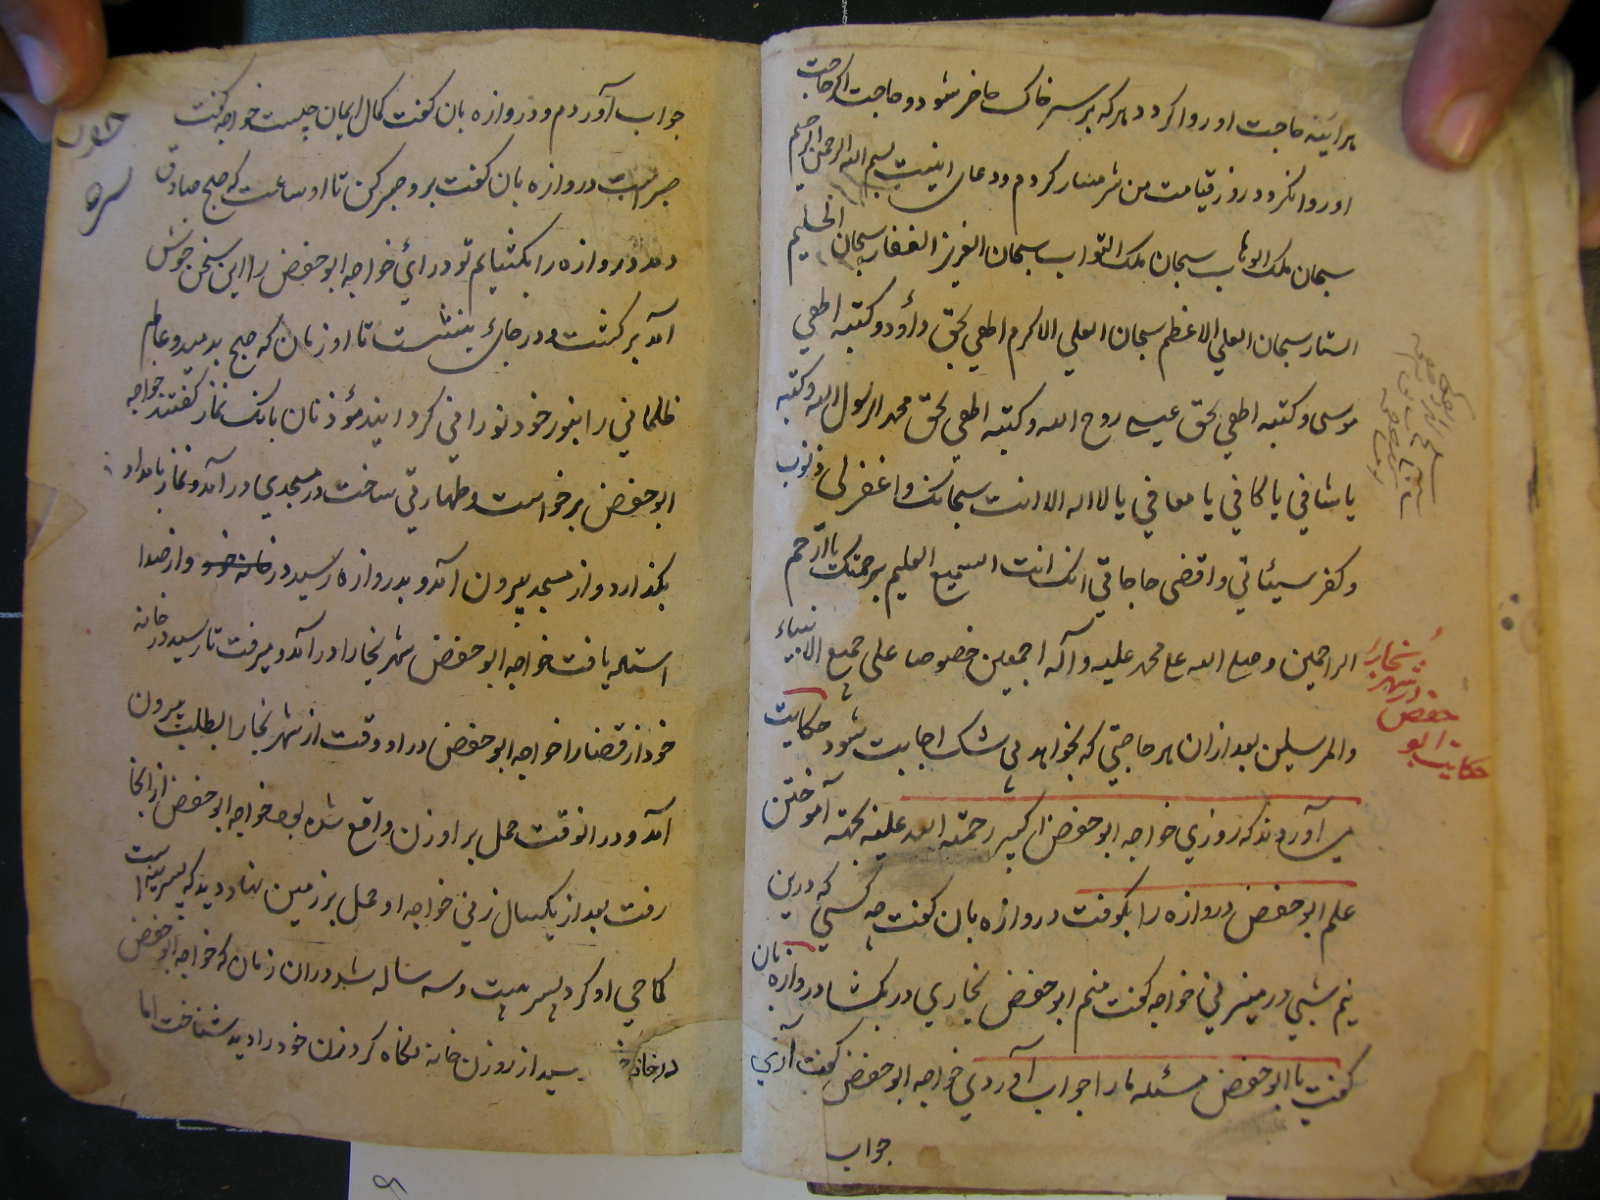 هر آئینه حاجت او روا کردد هر که بر سر خاک حاضر شود و حاجت اکر حاجت
او روا نکرد در روز قیامت من شرمسار کردم و دعا اینست بسم الله الرحمن الرحیم
سبحان ملک الوهاب سبحان ملک التواب سبحان العزیز الغفار سبحان الحلیم
الستار سبحان العلی الاعظم سبحان العلی الاکرم الهی بحق داؤد و کتبه الهی
موسی و کتبه الهی بحق عیسی روح الله و کتبه الهی بحق محمد الرسول الله و کتبه
یا شافی یا کافی یا معافی یا لا اله الا انت سبحانک و اغفر لی ذنوب
و کفر سیئاتی و اقضی حاجاتی انک انت السمیع العلیم برحمتک یا ارحم
الراحمین و صلی الله علی محمد علیه و آله اجمعین خصوصا علی جمیع الانبیاء
والمرسلین بعد ازان هر حاجتی که بخواهد بی شک اجابت شود حکایت
می آوردند که روزی خواجه ابوحفض کبیر رحمته الله علیه بجهته آموختن
علم ابوحفض دروازه را بکوفت دروازه بان کفت چه کسی که درین
نیم شبی در میزنی خواجه کفت منم ابوحفض بخاری در بکشا دروازه بان
کفت یا ابوحفض مسئله مارا جواب آوردی خواجه ابوحفض کفت آری
جواب
حکایت ابو
حفض
در شهر
بخارا
جواب آوردم و دروازه بان کفت کمال ایمان چیست خواجه کفت
صبر است دروازه بان کفت برو صبر کن تا او ساعت که صبح صادق
دمد دروازه را بکشایم تو درائی خواجه ابوحفض را این سخن خوش
آمد برکشت و در جای بنشست تا او زمان که صبح بدمید و عالم
ظلمانی را بنور خود نورانی کردانید مؤذنان بانک نماز کفتند خواجه
ابوحفض برخواست و طهارتی ساخت در مسجدی درآمد و نماز بامداد
بکذارد و از مسجد بیرون آمد و بدروازه رسید در خانه خود و از صدا
یافت خواجه ابوحفض شهر بخارا درآمد و میرفت تا رسید در خانه
خود از قضا را خواجه ابوحفض در او وقت از شهر بخارا بطلب بیرون
آمد و در انوقت حمل بر او زن واقع شده بود خواجه ابوحفض از انجا
رفت بعد از یکسال زنی خواجه او حمل بر زمین نهاد دید که پسرینه است
او کرد پسر بیست و سه ساله شد دران زمان که خواجه ابوحفض
در خانه رسید از روزن خانه نکاه کرد زن خود را دید شناخت اما